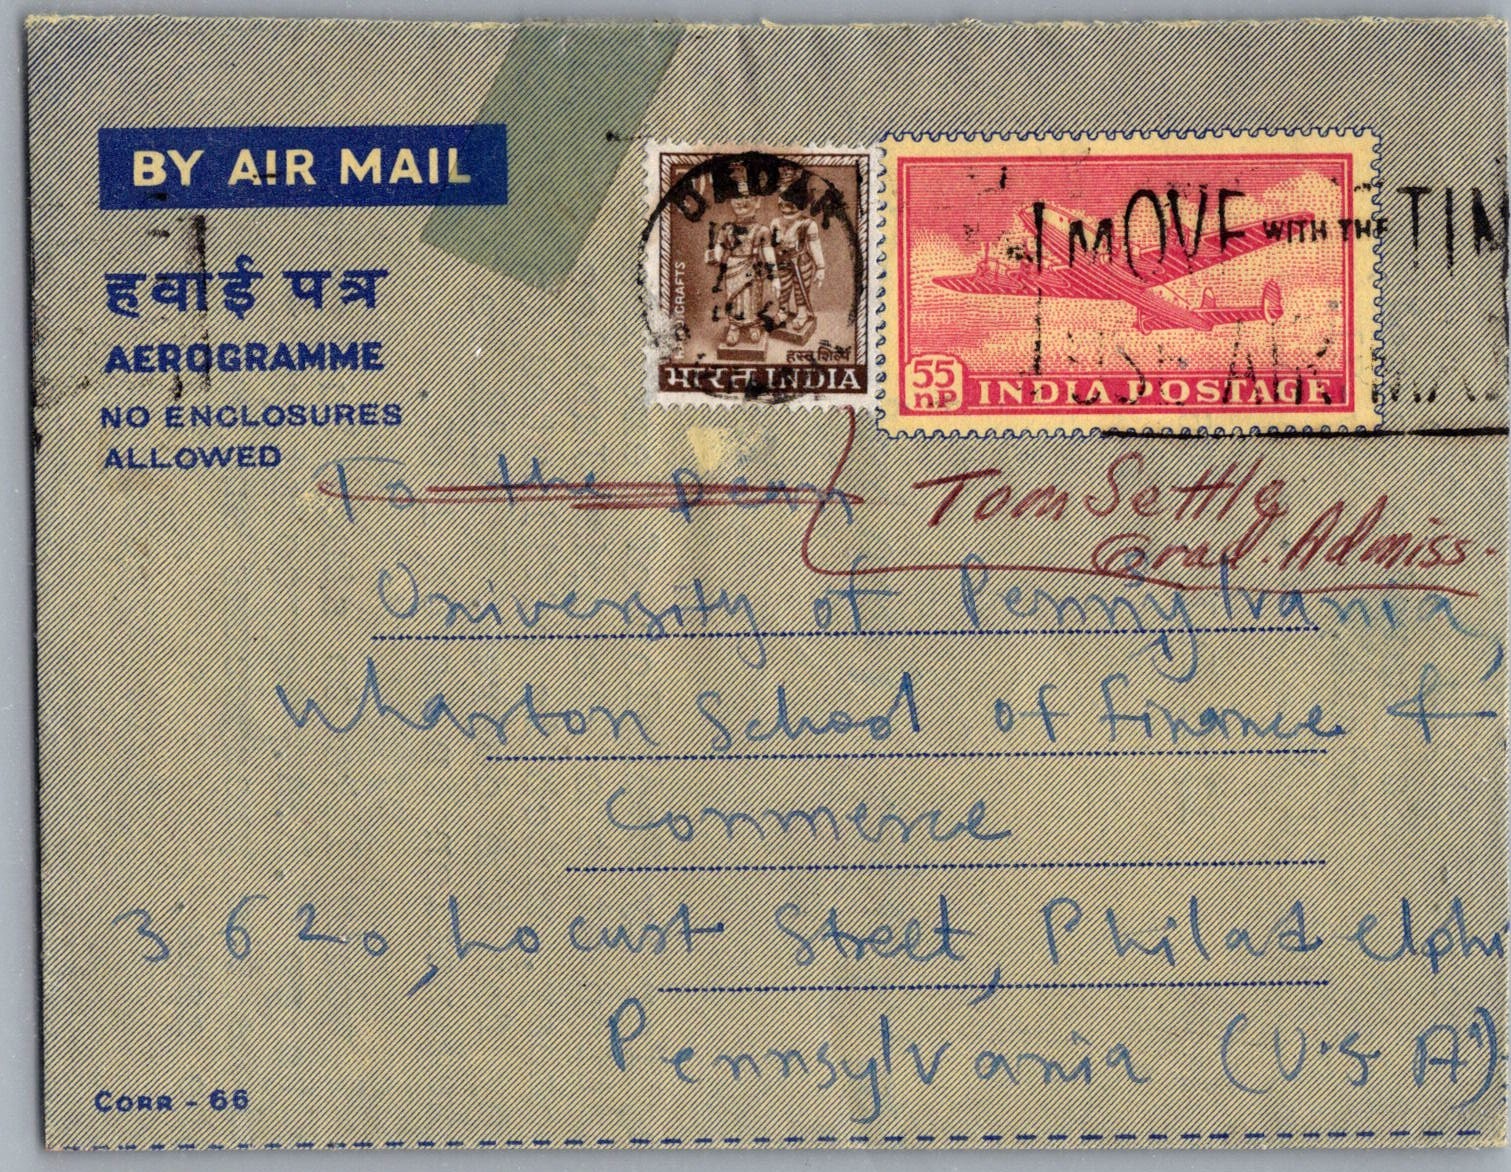 BY AIR MAIL
हवाई पत्र
AEROGRAMME
NO ENCLOSURES
ALLOWED
DADAR
हस्त शिल्प
भारत INDIA
MOVE WITH THE TIM
USE AIR MA
55
nP
INDIA POSTAGE
To the Dean
Tom Settle
Grad. Admiss.
University of Pennsylvania,
Wharton School of Finance &
Commerce
3620, Locust Street, Philadelphi
Pennsylvania (U.S.A)
CORR - 66